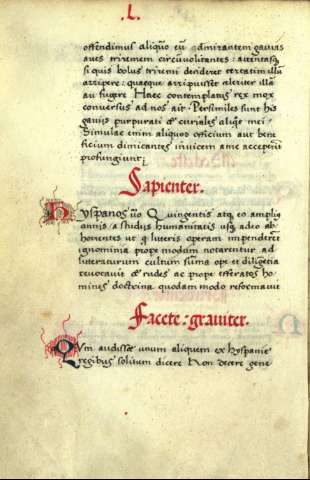 .L.
offendimus aliquo cū admirantem gavias
aves triremem circūvolitantes: attentasq;
si quis bolus triremi decideret certatim illū
arripere: quaeque arripuisset celeriter illā
au fugere Haec contemplatus rex mox
conversus ad nos ait. Persimiles sunt his
gaviis purpurati & curiales aliqs mei.
Simulac enim aliquos officium aut bene
ficium dimicantes invicem ame acceperīt
profungiunt;
Sapienter.
Hyspanos ūo Quingentis atq; eo amplio
annis a studiis humanitatis usq; adeo ab
honentes ut q literis operam impenderēt
ignominia prope modum notarentur ad
literaturum cultum sūma ope et diligētia
revocavit & rudes ac prope efferatos ho
mines doctrina quodam modo reformavit
Facete: graviter.
Qum audisset unum aliquem ex Hyspanie
regibus solitum dicere Non decere gene